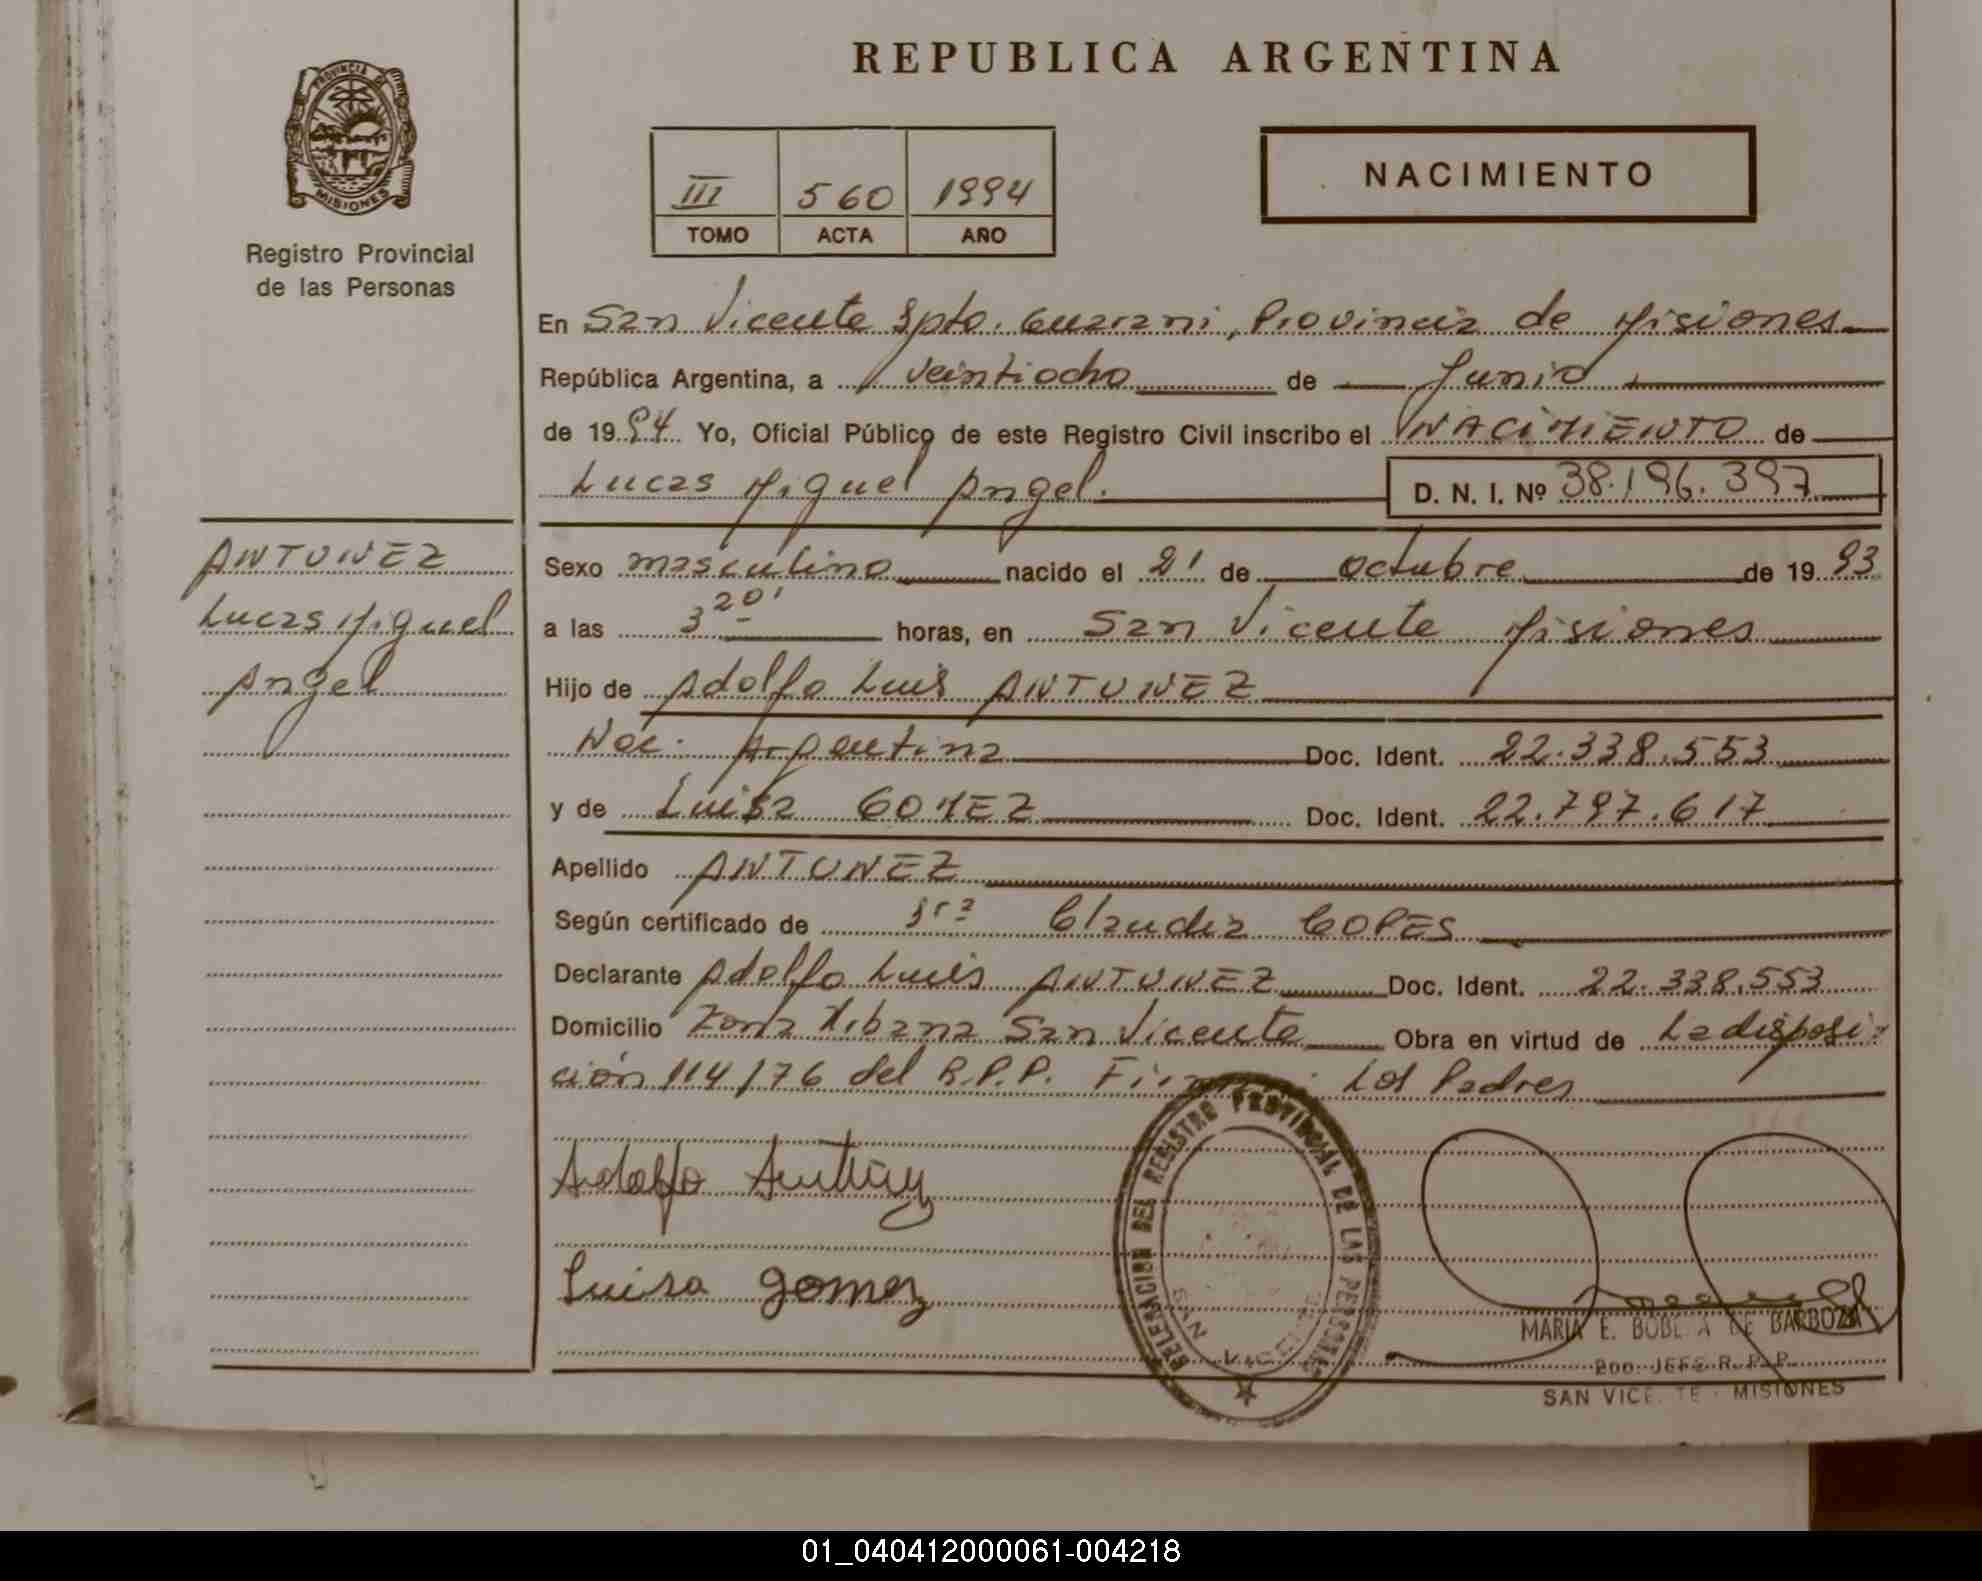 REPUBLICA ARGENTINA
PROVINCIA DE MISIONES
Registro Provincial
de las Personas
III 560 1994
TOMO ACTA AÑO
NACIMIENTO
En San Vicente Dpto. Guarani, Provincia de Misiones
República Argentina, a veintiocho de Junio
de 1994 Yo, Oficial Público de este Registro Civil inscribo el NACIMIENTO de
Lucas Miguel Angel. D. N. I. Nº 38.196.397
ANTUNEZ
Lucas Miguel
Angel
Sexo masculino nacido el 21 de octubre de 1993
a las 3 20' horas, en San Vicente Misiones
Hijo de Adolfo Luis ANTUNEZ
Nac. Argentina Doc. Ident. 22.338.553
y de Luisa GOMEZ Doc. Ident. 22.797.617
Apellido ANTUNEZ
Según certificado de Sra Claudia COPES
Declarante Adolfo Luis ANTUNEZ Doc. Ident. 22.338.553
Domicilio Zona Urbana San Vicente Obra en virtud de La disposi-
ción 114/76 del R.P.P. Los Padres
Adolfo
Luisa gomez
DELEGACION DEL REGISTRO PROVINCIAL DE LAS PERSONAS
SAN VICENTE
MARIA E. DE BARBOZA
2DO. JEFE R. P. P.
SAN VICENTE - MISIONES
01_040412000061-004218